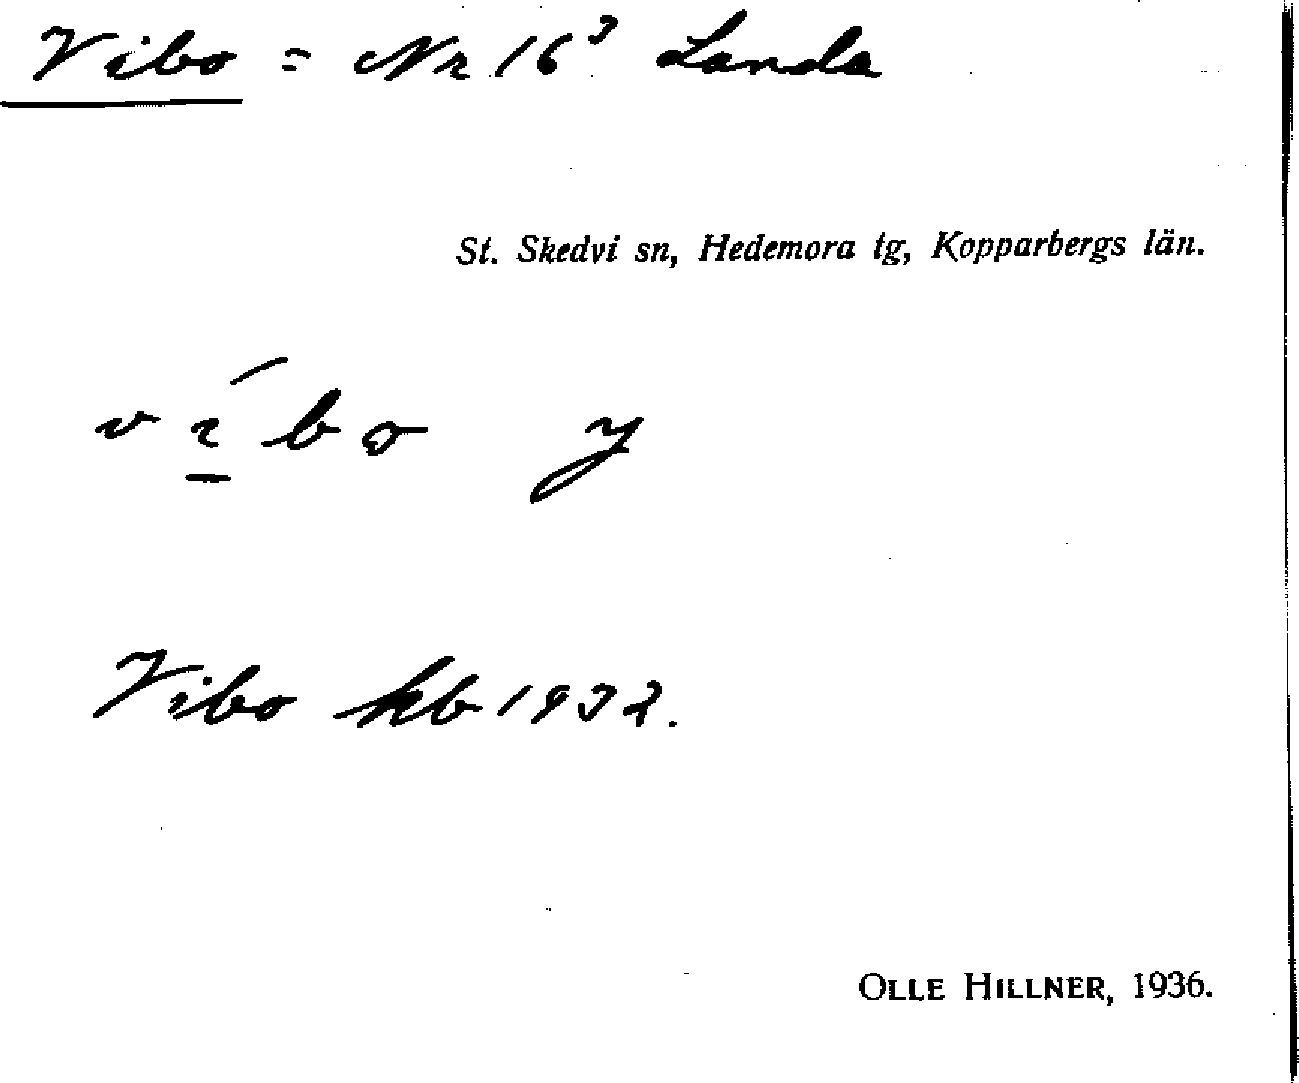 Vibo = Nr 16³ Landa
St. Skedvi sn, Hedemora tg, Kopparbergs län.
Vibo kb 1932.
OLLE HILLNER, 1936.